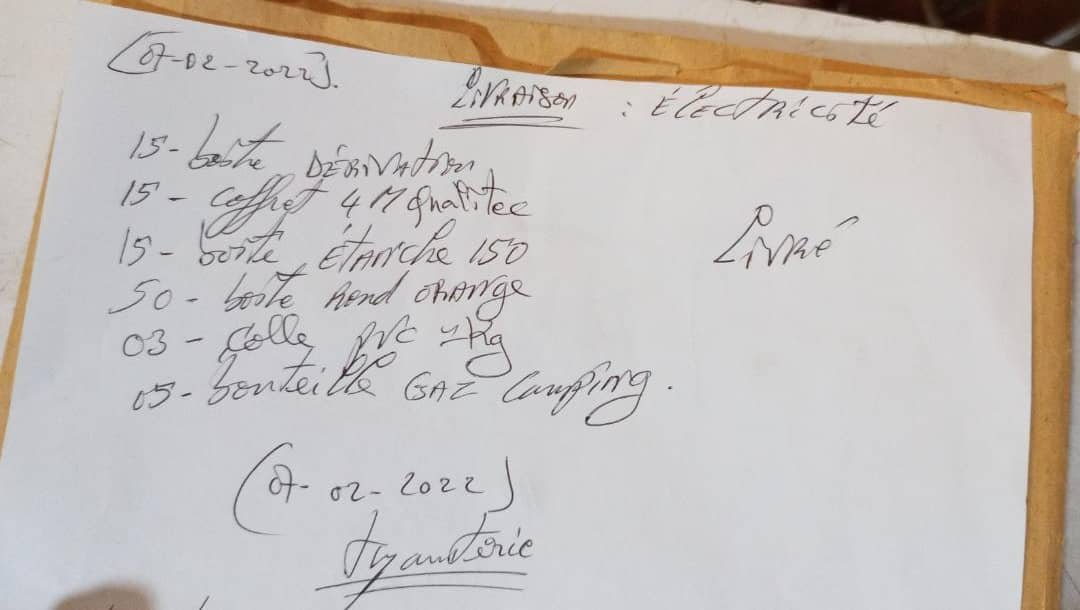 (07-02-2022).
Livraison : Électricité
15 - boite Dérivation
15 - coffret 4 M qualitee
15 - boite Étanche 150
Livré
50 - boite rond orange
03 - colle pvc 1kg
05 - bouteille GAZ Camping.
(07-02-2022)
tuyauterie